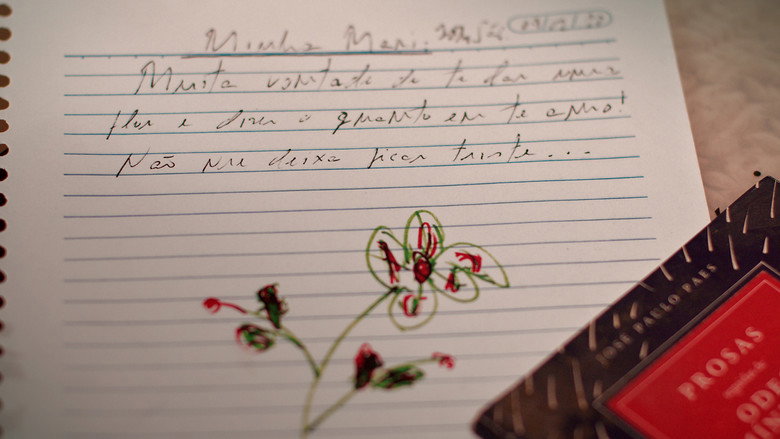 Minha
Muita vontade de te dar uma
flor e dizer o quanto eu te amo!
Não me deixa ficar triste...
JOSÉ PAULO PAES
PROSAS
seguidas de
ODE